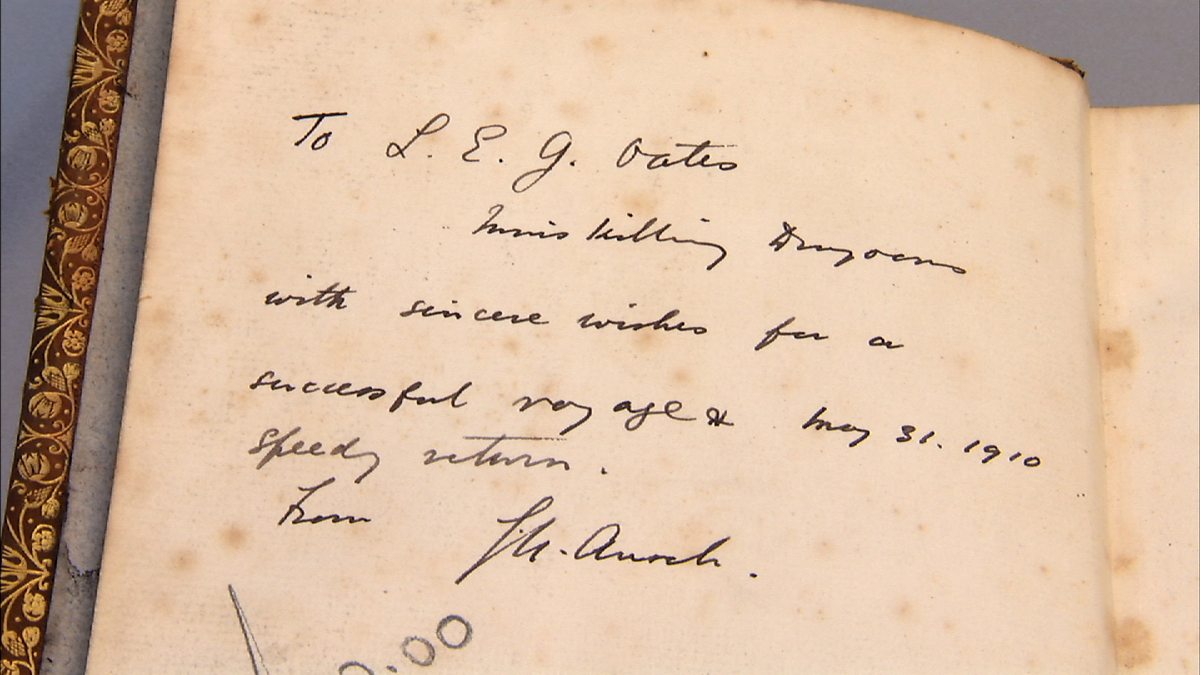 To L. E. G. Oates
Inniskilling Dragoons
with sincere wishes for a
successful voyage &
May 31. 1910
speedy return.
From
.00